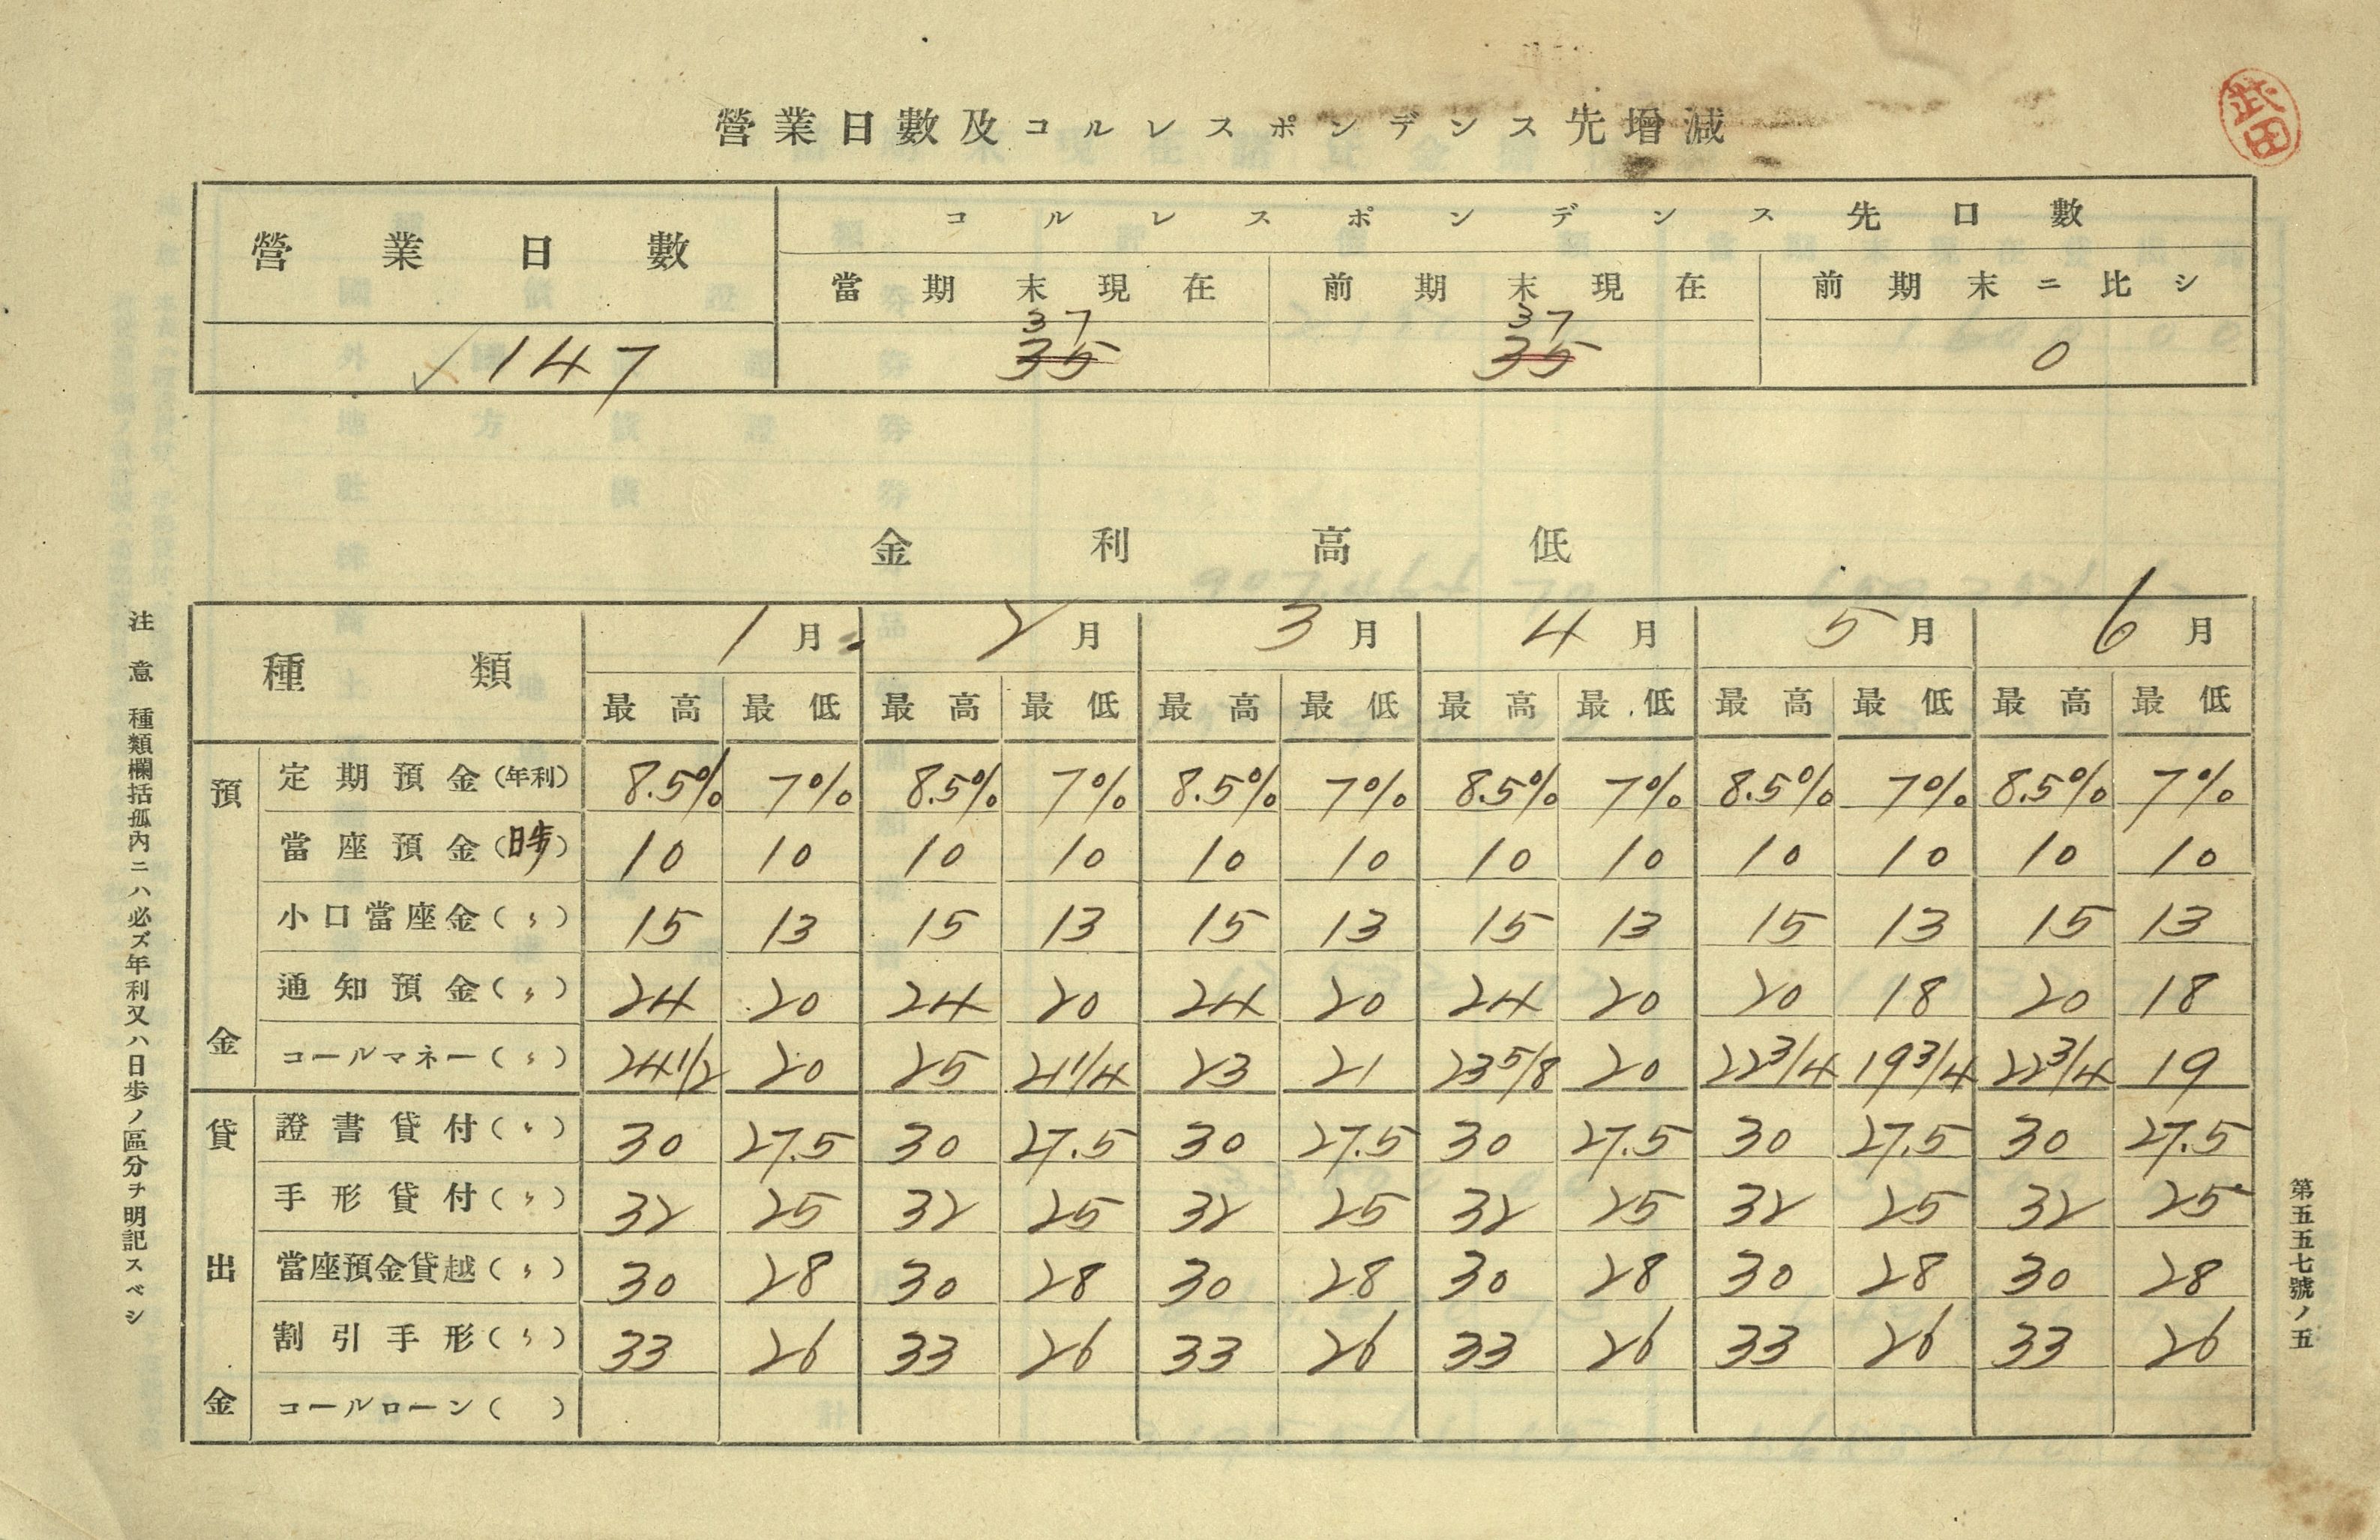 武田
營業日數及コルレスポンデンス先增減
營業日數
コルレスポンデンス先口數
當期末現在 前期末現在 前期末ニ比シ
37 37
147 35 35 0
金利高低
種類 1月 2月 3月 4月 5月 6月
最高 最低 最高 最低 最高 最低 最高 最低 最高 最低 最高 最低
預金
定期預金(年利) 8.5% 7% 8.5% 7% 8.5% 7% 8.5% 7% 8.5% 7% 8.5% 7%
當座預金(日歩) 10 10 10 10 10 10 10 10 10 10 10 10
小口當座金(〃) 15 13 15 13 15 13 15 13 15 13 15 13
通知預金(〃) 24 20 24 20 24 20 24 20 20 18 20 18
コールマネー(〃) 24 1/2 20 25 21 1/4 23 21 23 5/8 20 22 3/4 19 3/4 22 3/4 19
貸出金
證書貸付(〃) 30 27.5 30 27.5 30 27.5 30 27.5 30 27.5 30 27.5
手形貸付(〃) 32 25 32 25 32 25 32 25 32 25 32 25
當座預金貸越(〃) 30 28 30 28 30 28 30 28 30 28 30 28
割引手形(〃) 33 26 33 26 33 26 33 26 33 26 33 26
コールローン( )
注意 種類欄括孤内ニハ必ズ年利又ハ日歩ノ區分ヲ明記スベシ
第五五七號ノ五